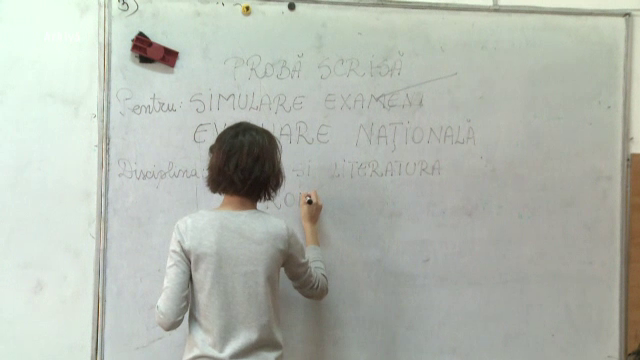 3)
PROBĂ SCRISĂ
Pentru: SIMULARE EXAMEN
NAȚIONALĂ
Disciplina și LITERATURA
ROM